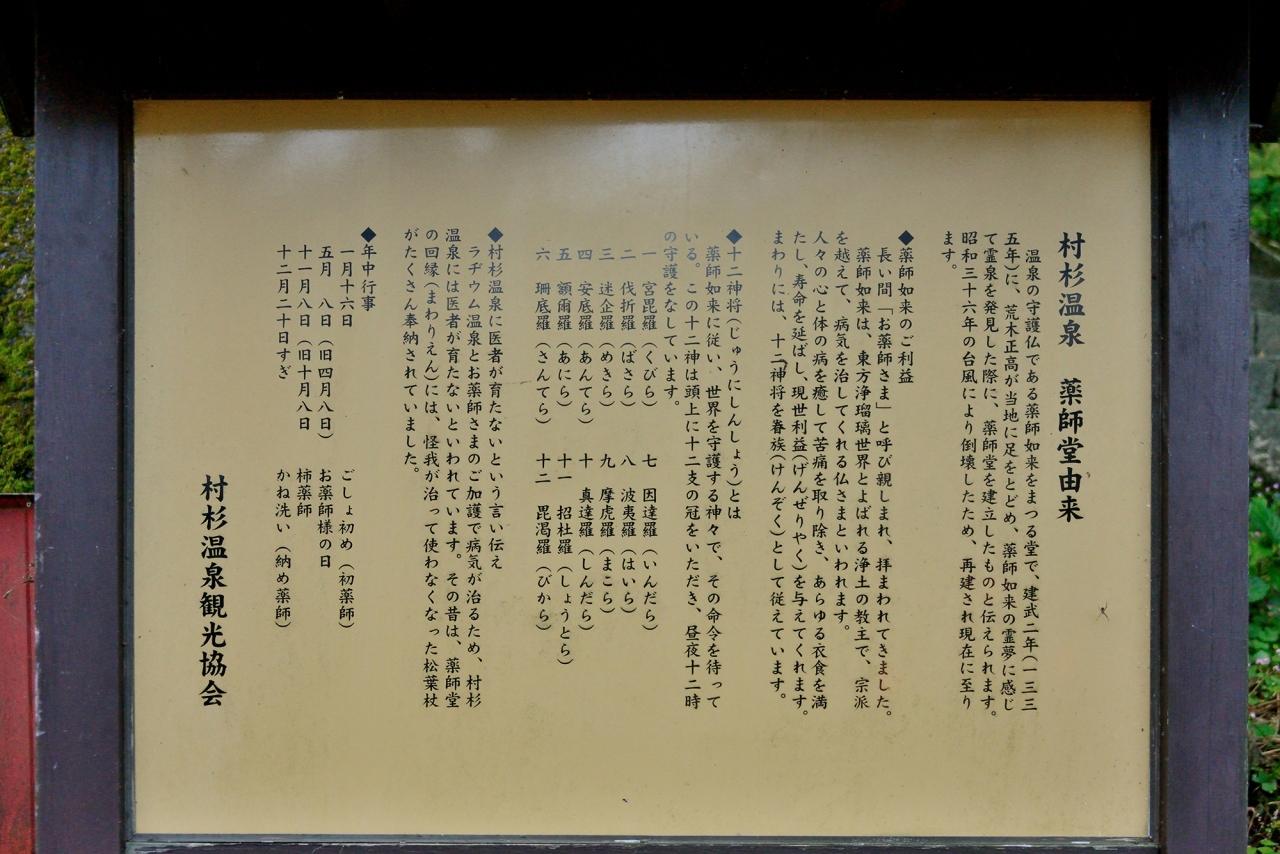 村杉温泉　薬師堂由来
温泉の守護仏である薬師如来をまつる堂で、建武二年(一三三
五年)に、荒木正高が当地に足をとどめ、薬師如来の霊夢に感じ
て霊泉を発見した際に、薬師堂を建立したものと伝えられます。
昭和三十六年の台風により倒壊したため、再建され現在に至り
ます。
◆薬師如来のご利益
長い間「お薬師さま」と呼び親しまれ、拝まわれてきました。
薬師如来は、東方浄瑠璃世界とよばれる浄土の教主で、宗派
を越えて、病気を治してくれる仏さまといわれます。
人々の心と体の病を癒して苦痛を取り除き、あらゆる衣食を満
たし、寿命を延ばし、現世利益(げんぜりやく)を与えてくれます。
まわりには、十二神将を眷族(けんぞく)として従えています。
◆十二神将(じゅうにしんしょう)とは
薬師如来に従い、世界を守護する神々で、その命令を待って
いる。この十二神は頭上に十二支の冠をいただき、昼夜十二時
の守護をなしています。
一　宮毘羅（くびら）　七　因達羅（いんだら）
二　伐折羅（ばさら）　八　波夷羅（はいら）
三　迷企羅（めきら）　九　摩虎羅（まこら）
四　安底羅（あんてら）　十　真達羅（しんだら）
五　額爾羅（あにら）　十一　招杜羅（しょうとら）
六　珊底羅（さんてら）　十二　毘渇羅（びから）
◆村杉温泉に医者が育たないという言い伝え
ラヂウム温泉とお薬師さまのご加護で病気が治るため、村杉
温泉には医者が育たないといわれています。その昔は、薬師堂
の回縁(まわりえん)には、怪我が治って使わなくなった松葉杖
がたくさん奉納されていました。
◆年中行事
一月十六日　ごしょ初め（初薬師）
五月　八日（旧四月八日）　お薬師様の日
十一月八日（旧十月八日　柿薬師
十二月二十日すぎ　かね洗い（納め薬師）
村杉温泉観光協会